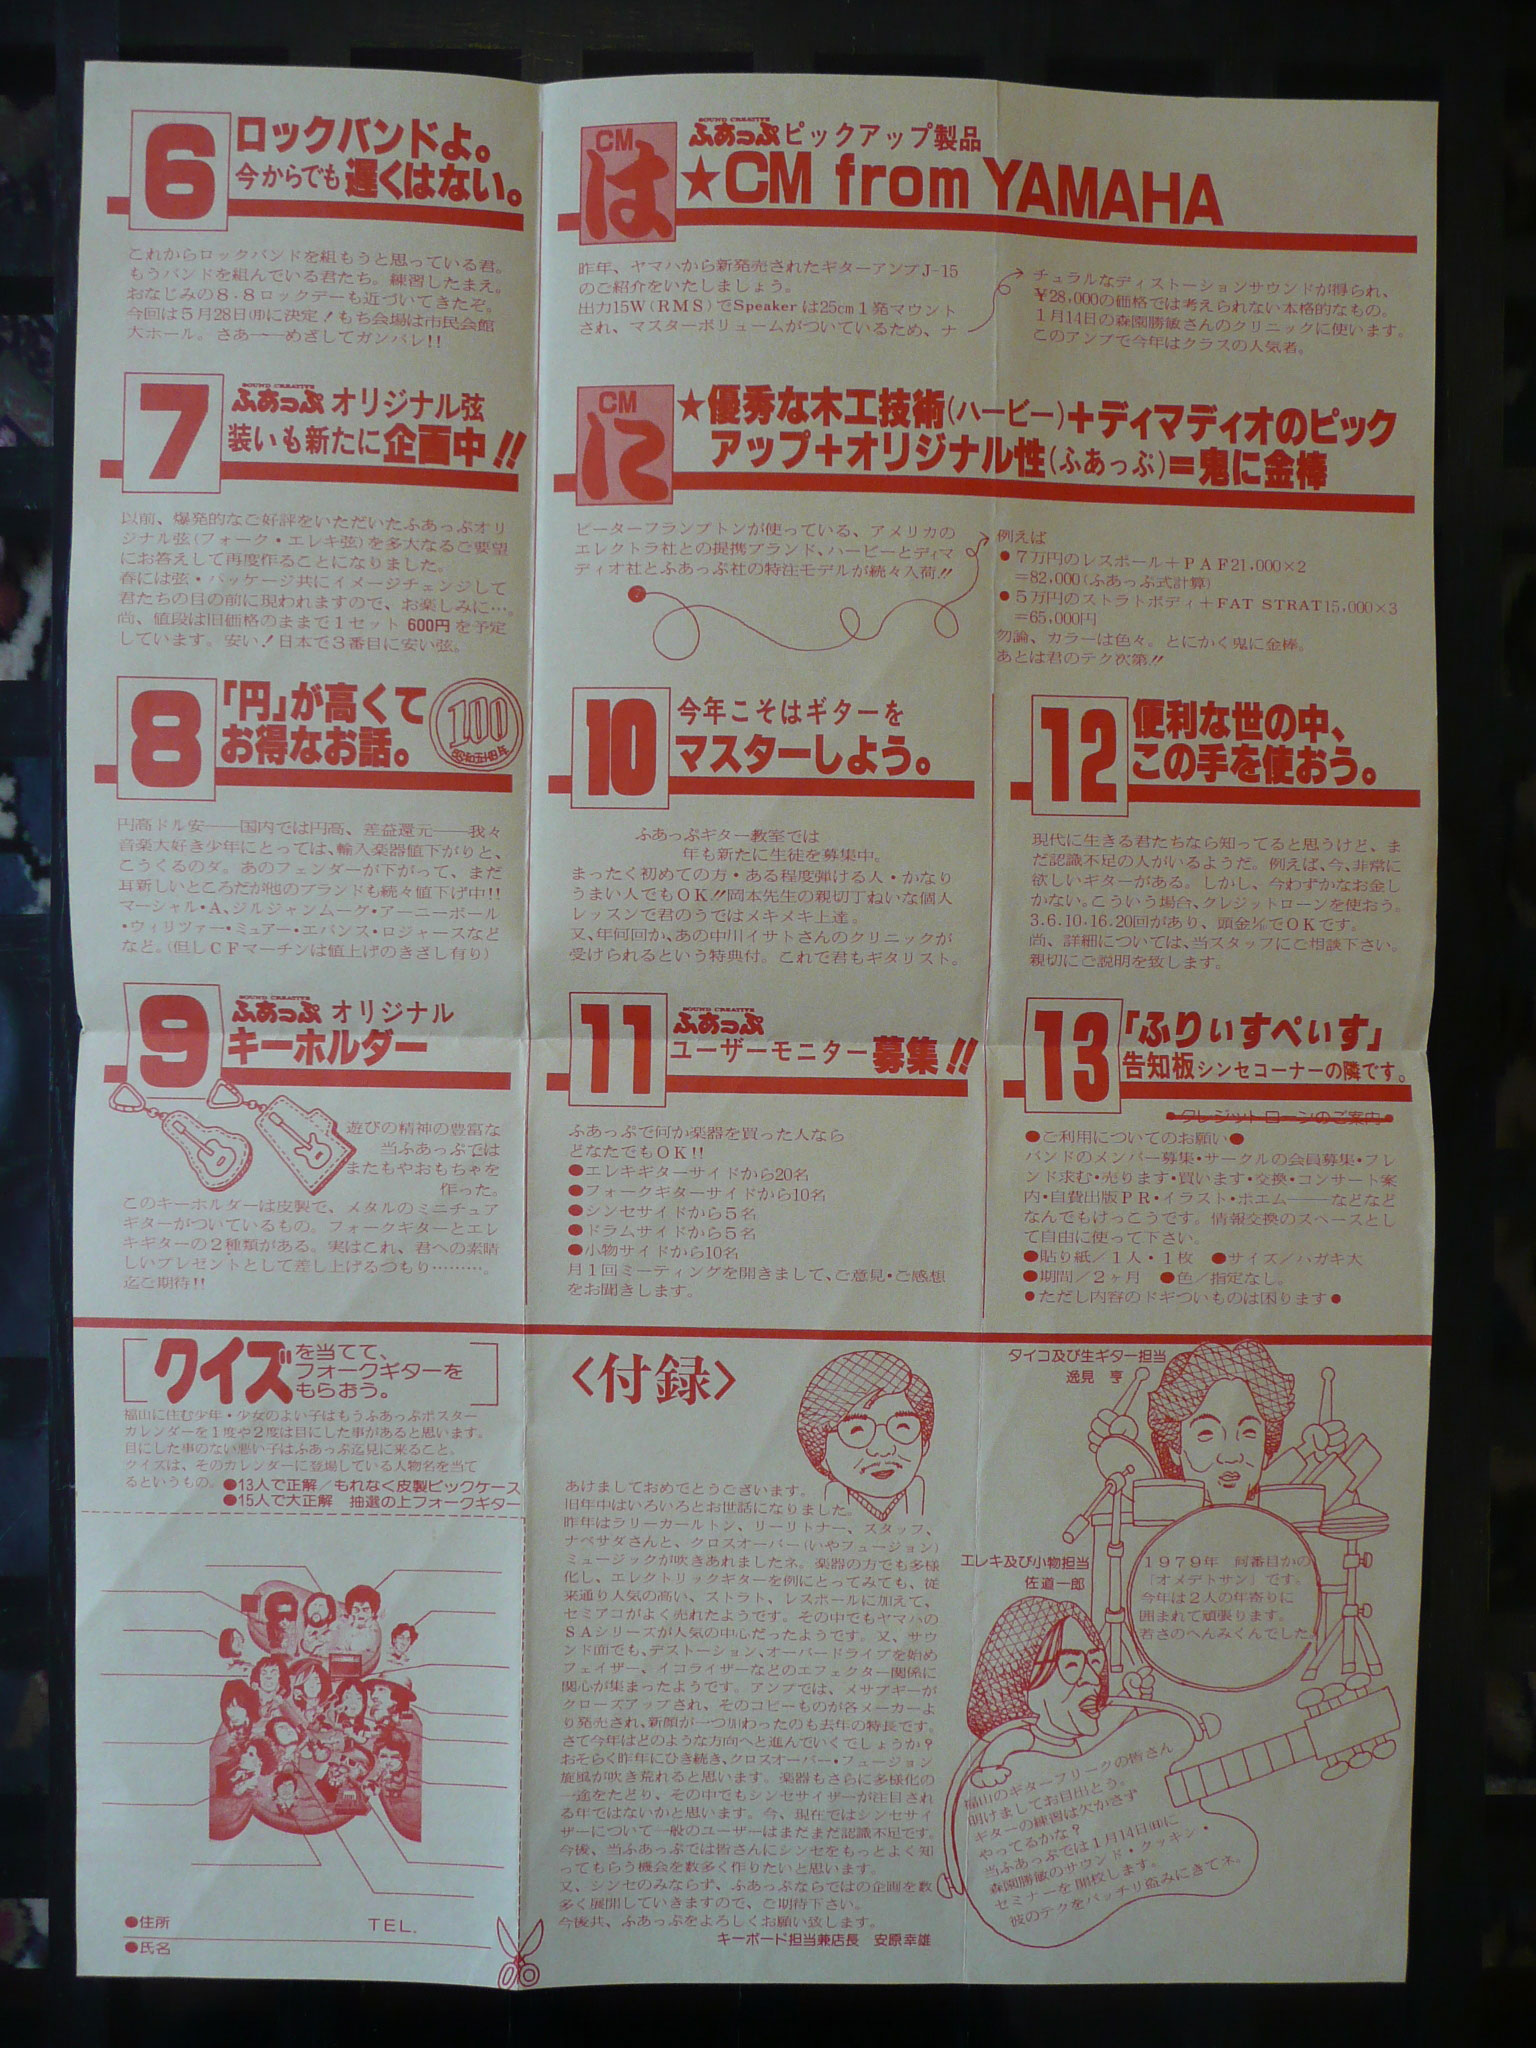 6
ロックバンドよ。
今からでも遅くはない。
これからロックバンドを組もうと思っている君。
もうバンドを組んでいる君たち。練習したまえ。
おなじみの8・8ロックデーも近づいてきたぞ。
今回は5月28日㊐に決定!もち会場は市民会館
大ホール。さあ──めざしてガンバレ!!
7
SOUND CREATIVE
ふあっぷ オリジナル弦
装いも新たに企画中!!
以前、爆発的なご好評をいただいたふあっぷオリ
ジナル弦(フォーク・エレキ弦)を多大なるご要望
にお答えして再度作ることになりました。
春には弦・パッケージ共にイメージチェンジして
君たちの目の前に現われますので、お楽しみに…。
尚、値段は旧価格のままで1セット600円を予定
しています。安い!日本で3番目に安い弦。
8
「円」が高くて
お得なお話。
100
昭和五十四年
円高ドル安──国内では円高、差益還元──我々
音楽大好き少年にとっては、輸入楽器値下がりと、
こうくるのダ。あのフェンダーが下がって、まだ
耳新しいところだが他のブランドも続々値下げ中!!
マーシャル・A、ジルジャンムーグ・アーニーボール
・ウィリツァー・ミュアー・エバンス・ロジャースなど
など。(但しCFマーチンは値上げのきざし有り)
9
SOUND CREATIVE
ふあっぷ オリジナル
キーホルダー
遊びの精神の豊富な
当ふあっぷでは
またもやおもちゃを
作った。
このキーホルダーは皮製で、メタルのミニチュア
ギターがついているもの。フォークギターとエレ
キギターの2種類がある。実はこれ、君への素晴
しいプレゼントとして差し上げるつもり………。
迄ご期待!!
CM
は
SOUND CREATIVE
ふあっぷ ピックアップ製品
★CM from YAMAHA
昨年、ヤマハから新発売されたギターアンプJ-15
のご紹介をいたしましょう。
出力15W(RMS)でSpeakerは25cm1発マウント
され、マスターボリュームがついているため、ナ
チュラルなディストーションサウンドが得られ、
¥28,000の価格では考えられない本格的なもの。
1月14日の森園勝敏さんのクリニックに使います。
このアンプで今年はクラスの人気者。
CM
に
★優秀な木工技術(ハービー)+ディマディオのピック
アップ+オリジナル性(ふあっぷ)=鬼に金棒
ピーターフランプトンが使っている、アメリカの
エレクトラ社との提携ブランド、ハービーとディマ
ディオ社とふあっぷ社の特注モデルが続々入荷!!
例えば
●7万円のレスポール+PAF21,000×2
=82,000(ふあっぷ式計算)
●5万円のストラトボディ+FAT STRAT15,000×3
=65,000円
勿論、カラーは色々。とにかく鬼に金棒。
あとは君のテク次第!!
10
今年こそはギターを
マスターしよう。
ふあっぷギター教室では
年も新たに生徒を募集中。
まったく初めての方・ある程度弾ける人・かなり
うまい人でもOK!!岡本先生の親切丁ねいな個人
レッスンで君のうではメキメキ上達。
又、年何回か、あの中川イサトさんのクリニックが
受けられるという特典付。これで君もギタリスト。
11
SOUND CREATIVE
ふあっぷ
ユーザーモニター募集!!
ふあっぷで何か楽器を買った人なら
どなたでもOK!!
●エレキギターサイドから20名
●フォークギターサイドから10名
●シンセサイドから5名
●ドラムサイドから5名
●小物サイドから10名
月1回ミーティングを開きまして、ご意見・ご感想
をお聞きします。
12
便利な世の中、
この手を使おう。
現代に生きる君たちなら知ってると思うけど、ま
だ認識不足の人がいるようだ。例えば、今、非常に
欲しいギターがある。しかし、今わずかなお金し
かない。こういう場合、クレジットローンを使おう。
3.6.10.16.20回があり、頭金⅒でOKです。
尚、詳細については、当スタッフにご相談下さい。
親切にご説明を致します。
13
「ふりぃすぺいす」
告知板シンセコーナーの隣です。
●クレジットローンのご案内●
●ご利用についてのお願い●
バンドのメンバー募集・サークルの会員募集・フレ
ンド求む・売ります・買います・交換・コンサート案
内・自費出版PR・イラスト・ポエム──などなど
なんでもけっこうです。情報交換のスペースとし
て自由に使って下さい。
●貼り紙/1人・1枚 ●サイズ/ハガキ大
●期間/2ヶ月 ●色/指定なし。
●ただし内容のドギついものは困ります●
クイズを当てて、
フォークギターを
もらおう。
福山に住む少年・少女のよい子はもうふあっぷポスター
カレンダーを1度や2度は目にした事があると思います。
目にした事のない悪い子はふあっぷ迄見に来ること、
クイズは、そのカレンダーに登場している人物名を当て
るというもの。●13人で正解/もれなく皮製ピックケース
●15人で大正解 抽選の上フォークギター
●住所
TEL.
●氏名
〈付録〉
あけましておめでとうございます。
旧年中はいろいろとお世話になりました。
昨年はラリーカールトン、リーリトナー、スタッフ、
ナベサダさんと、クロスオーバー(いやフュージョン)
ミュージックが吹きあれましたネ。楽器の方でも多様
化し、エレクトリックギターを例にとってみても、従
来通り人気の高い、ストラト、レスポールに加えて、
セミアコがよく売れたようです。その中でもヤマハの
SAシリーズが人気の中心だったようです。又、サウ
ンド面でも、デストーション、オーバードライブを始め
フェイザー、イコライザーなどのエフェクター関係に
関心が集まったようです。アンプでは、メサブギーが
クローズアップされ、そのコピーものが各メーカーよ
り発売され、新顔が一つ加わったのも去年の特長です。
さて今年はどのような方向へと進んでいくでしょうか?
おそらく昨年にひき続き、クロスオーバー・フュージョン
旋風が吹き荒れると思います。楽器もさらに多様化の
一途をたどり、その中でもシンセサイザーが注目され
る年ではないかと思います。今、現在ではシンセサイ
ザーについて一般のユーザーはまだまだ認識不足です。
今後、当ふあっぷでは皆さんにシンセをもっとよく知
ってもらう機会を数多く作りたいと思います。
又、シンセのみならず、ふあっぷならではの企画を数
多く展開していきますので、ご期待下さい。
今後共、ふあっぷをよろしくお願い致します。
キーボード担当兼店長 安原幸雄
タイコ及び生ギター担当
逸見 亨
1979年 何番目かの
「オメデトサン」です。
今年は2人の年寄りに
囲まれて頑張ります。
若さのへんみくんでした。
エレキ及び小物担当
佐道一郎
福山のギターフリークの皆さん
明けましてお目出とう。
ギターの練習は欠かさず
やってるかな?
当ふあっぷでは1月14日㊐に
森園勝敏のサウンド・クッキン・
セミナーを開校します。
彼のテクをバッチリ盗みにきてネ。